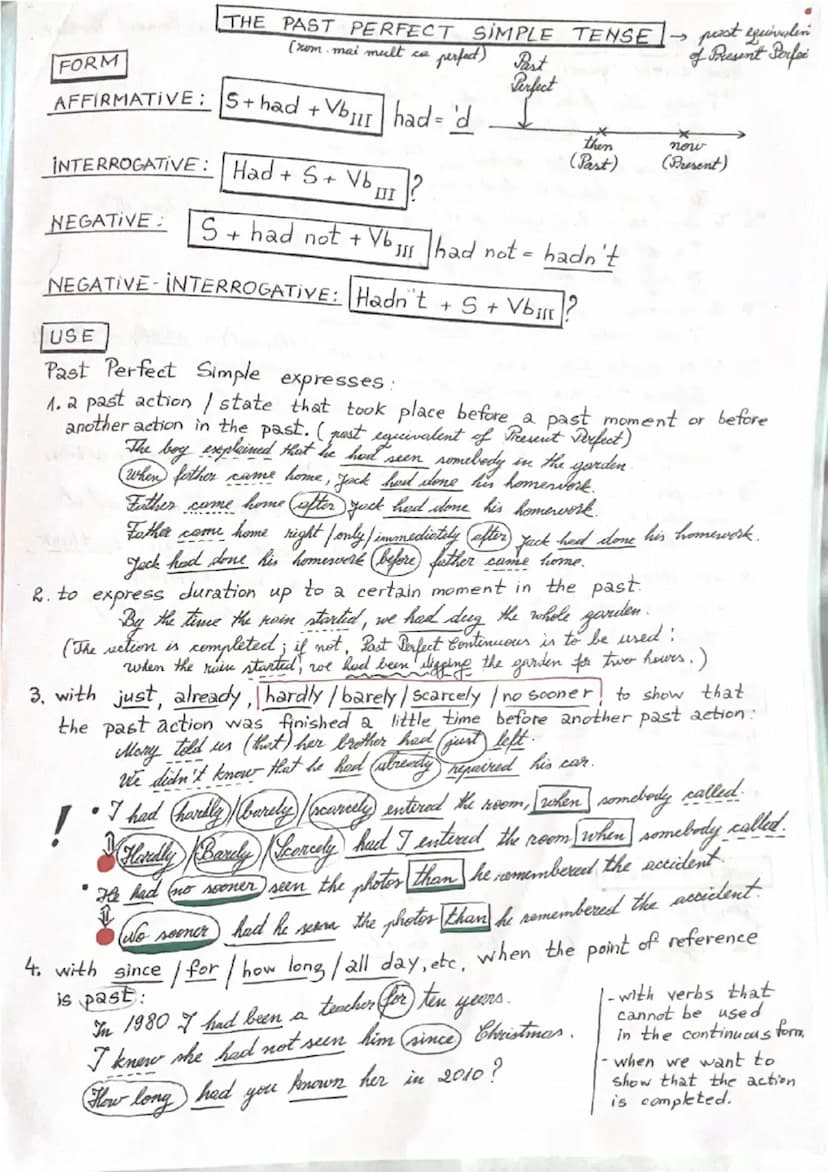 THE PAST PERFECT SIMPLE TENSE → past equivalent
(rom. mai mult ca perfect)
of Present Perfe
Past
Perfect
FORM
AFFIRMATIVE: S + had + Vb III had = 'd
then
(Past)
now
(Present)
INTERROGATIVE: Had + S + Vb III ?
NEGATIVE: S + had not + Vb III had not = hadn't
NEGATIVE-INTERROGATIVE: Hadn't + S + Vb III ?
USE
Past Perfect Simple expresses:
1. a past action / state that took place before a past moment or before
another action in the past. (past equivalent of Present Perfect)
The boy explained that he had seen somebody in the garden.
When father came home, Jack had done his homework.
Father came home after Jack had done his homework.
Father came home right / only / immediately after Jack had done his homework.
Jack had done his homework before father came home.
2. to express duration up to a certain moment in the past.
By the time the rain started, we had dug the whole garden.
(The action is completed; if not, Past Perfect Continuous is to be used:
When the rain started, we had been digging the garden for two hours.)
3. with just, already, hardly / barely / scarcely / no sooner, to show that
the past action was finished a little time before another past action:
Mary told us (that) her brother had just left.
We didn't know that he had already repaired his car.
! • I had hardly / barely / scarcely entered the room, when somebody called.
⇕ Hardly / Barely / Scorcely had I entered the room when somebody called.
• He had no sooner seen the photos than he remembered the accident.
⇕ No sooner had he seen the photos than he remembered the accident.
4. with since / for / how long / all day, etc, when the point of reference
is past:
In 1980 I had been a teacher for ten years.
I knew she had not seen him since Christmas.
How long had you known her in 2010?
- with verbs that
cannot be used
in the continuous form
- when we want to
show that the action
is completed.